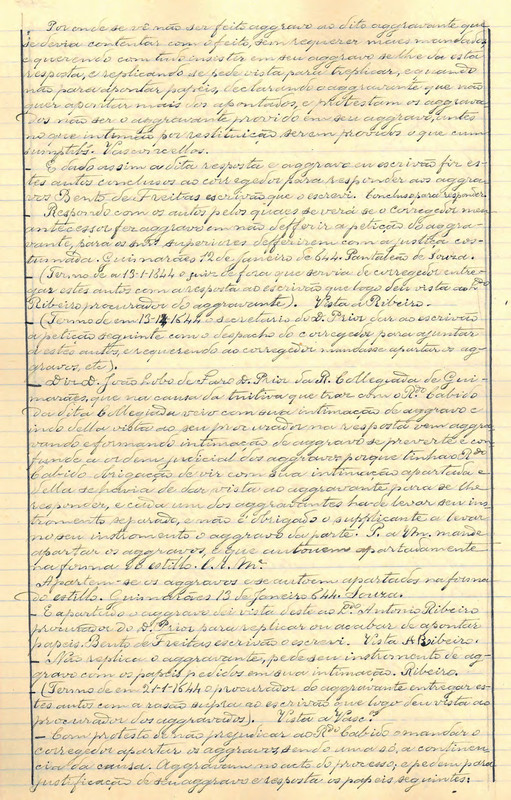 Por onde se vê não ser feito aggravo ao dito aggravante que
se devia contentar com o feito, sem requerer mais mandados
e querendo com tudo insistir em seu aggravo se lhe dá esta
resposta, e replicando se pede vista para treplicar, e quando
não para apontar papeis, declarando o aggravante que não
quer apontar mais dos apontados, e protestam os aggrava-
dos não ser o aggravante provido em seu aggravo, antes
no que intimão por restituição serem providos o que cum
sumptib. Vasconcellos.
- E dado assim a dita resposta e aggravo eu escrivão fiz es-
tes autos conclusos ao corregedor para responder aos aggra-
vos Bento de Freitas escrivão que o escrevi. Conclusos para responder.
- Respondo com os autos pelos quaes se verá se o corregedor meu
antecessor fez aggravo em não defferir a petição do aggra-
vante, para os snrs. superiores defferirem com a justiça cos-
tumada. Guimarães 12 de janeiro de 644. Pantaleão de Souza.
- (Termo de a 13-1-1644 o juiz de fora que servia de corregedor entre-
gar estes autos com a resposta ao escrivão que logo deu vista ao L.do
Ribeiro procurador do aggravante). Vista a Ribeiro.
- (Termo de em 13-1-1644 o secretario do D. Prior dar ao escrivão
a petição seguinte com o despacho do corregedor para ajuntar
a estes autos, e requerendo ao corregedor mandasse apartar os ag-
gravos, etc).
- Diz D. João Lobo de Faro D. Prior da R. Collegiada de Gui-
marães, que na causa da tuitiva que traz com o R.do Cabido
da dita Collegiada veio com sua intimação de aggravo e
indo della vista ao seu procurador na resposta vem aggra-
vando e formando intimação de aggravo se preverte e con-
funde a ordem judicial dos aggravos porque tinha o R.do
Cabido obrigação de vir com sua intimação apartada e
della se havia de dar vista ao aggravante para se lhe
responder, e cada um dos aggravantes ha de levar seu ins-
tromento separado, e não é obrigado o supplicante a levar
no seu instromento o aggravo da parte. P. a Vm. mande
apartar os aggravos, e que autouem apartadamente
na forma do estilo. E. R. M.ce
Apartem-se os aggravos e se autoem apartados na forma
do estillo. Guimarães 13 de janeiro 644. Souza.
- E apartado o aggravo dei vista deste ao L.do Antonio Ribeiro
procurador do D. Prior para replicar ou acabar de apontar
papeis. Bento de Freitas escrivão o escrevi. Vista a Ribeiro.
- Não replica o aggravante, pede seu instromento de ag-
gravo com os papeis pedidos em sua intimação. Ribeiro.
- (Termo de em 21-1-1644 o procurador do aggravante entregar es-
tes autos com a rasão supra ao escrivão que logo deu vista ao
procurador dos aggravados). Vista a Vasc.os
- Com protesto de não prejudicar ao R.do Cabido o mandar o
corregedor apartar os aggravos, sendo uma só, a continen-
cia da causa. Aggravam no acto do processo, e pedem para
justificação de seu aggravo e resposta os papeis seguintes: